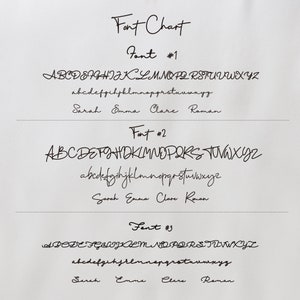 Font Chart
Font #1
ABCDEFGHIJKLMNOPQRSTUVWXYZ
abcdefghijklmnopqrstuvwxyz
Sarah Emma Clare Roman
Font #2
ABCDEFGHIJKLMNOPQRSTUVWXYZ
abcdefghijklmnopqrstuvwxyz
Sarah Emma Clare Roman
Font #3
ABCDEFGHIJKLMNOPQRSTUVWXYZ
abcdefghijklmnopqrstuvwxyz
Sarah Emma Clare Roman